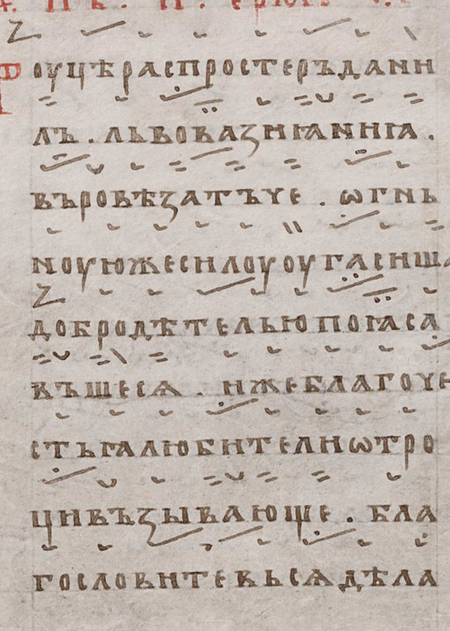 Роуцѣ распростеръ дани
лъ . львова зиꙗниꙗ .
въ ровѣ затъче . ѡгнь
ноую же силоу оугасиша
добродѣтелью поꙗса
въшесѧ . иже благоче
стьꙗ любители ѡтро
ци възывающе . бла
гословите вьсѧ дѣла